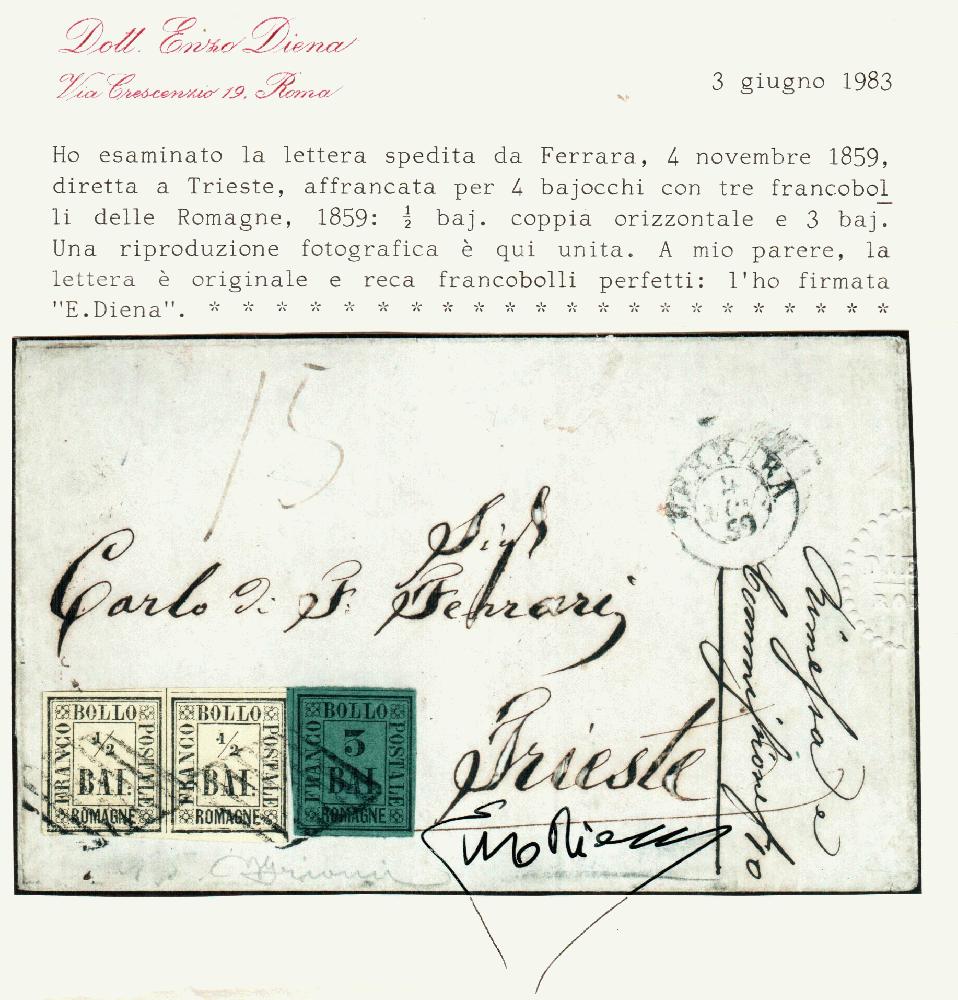 Dott. Enzo Diena
Via Crescenzio 19. Roma
3 giugno 1983
Ho esaminato la lettera spedita da Ferrara, 4 novembre 1859,
diretta a Trieste, affrancata per 4 bajocchi con tre francobol
li delle Romagne, 1859: ½ baj. coppia orizzontale e 3 baj.
Una riproduzione fotografica è qui unita. A mio parere, la
lettera è originale e reca francobolli perfetti: l'ho firmata
"E.Diena". * * * * * * * * * * * * * * * * * * * * *
15
FERRARA
59
Sigr
Carlo Di F. Ferrari
Trieste
BOLLO
FRANCO
POSTALE
1/2
BAI.
ROMAGNE
BOLLO
FRANCO
POSTALE
1/2
BAI.
ROMAGNE
BOLLO
FRANCO
POSTALE
3
BAI.
ROMAGNE
Enzo Diena